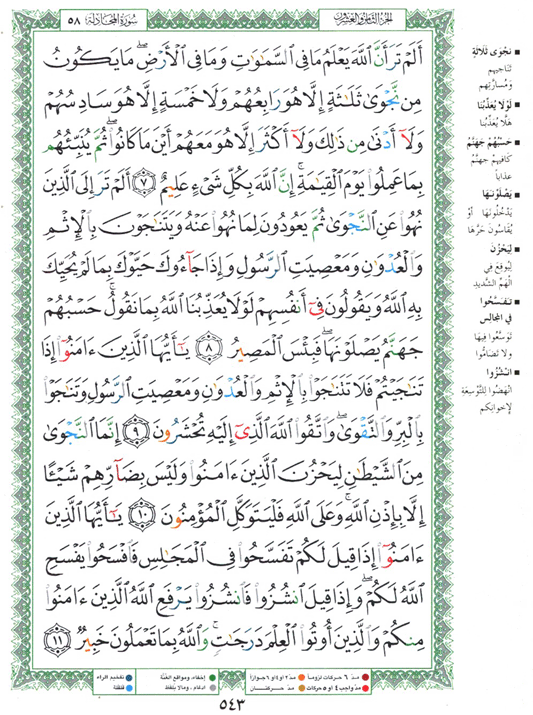 الجزء الثامن والعشرون
سورة المجادلة ٥٨
أَلَمْ تَرَ أَنَّ ٱللَّهَ يَعْلَمُ مَا فِى ٱلسَّمَٰوَٰتِ وَمَا فِى ٱلْأَرْضِ ۖ مَا يَكُونُ
مِن نَّجْوَىٰ ثَلَٰثَةٍ إِلَّا هُوَ رَابِعُهُمْ وَلَا خَمْسَةٍ إِلَّا هُوَ سَادِسُهُمْ
وَلَآ أَدْنَىٰ مِن ذَٰلِكَ وَلَآ أَكْثَرَ إِلَّا هُوَ مَعَهُمْ أَيْنَ مَا كَانُوا۟ ۖ ثُمَّ يُنَبِّئُهُم
بِمَا عَمِلُوا۟ يَوْمَ ٱلْقِيَٰمَةِ ۚ إِنَّ ٱللَّهَ بِكُلِّ شَىْءٍ عَلِيمٌ ٧ أَلَمْ تَرَ إِلَى ٱلَّذِينَ
نُهُوا۟ عَنِ ٱلنَّجْوَىٰ ثُمَّ يَعُودُونَ لِمَا نُهُوا۟ عَنْهُ وَيَتَنَٰجَوْنَ بِٱلْإِثْمِ
وَٱلْعُدْوَٰنِ وَمَعْصِيَتِ ٱلرَّسُولِ وَإِذَا جَآءُوكَ حَيَّوْكَ بِمَا لَمْ يُحَيِّكَ
بِهِ ٱللَّهُ وَيَقُولُونَ فِىٓ أَنفُسِهِمْ لَوْلَا يُعَذِّبُنَا ٱللَّهُ بِمَا نَقُولُ ۚ حَسْبُهُمْ
جَهَنَّمُ يَصْلَوْنَهَا ۖ فَبِئْسَ ٱلْمَصِيرُ ٨ يَٰٓأَيُّهَا ٱلَّذِينَ ءَامَنُوٓا۟ إِذَا
تَنَٰجَيْتُمْ فَلَا تَتَنَٰجَوْا۟ بِٱلْإِثْمِ وَٱلْعُدْوَٰنِ وَمَعْصِيَتِ ٱلرَّسُولِ وَتَنَٰجَوْا۟
بِٱلْبِرِّ وَٱلتَّقْوَىٰ ۖ وَٱتَّقُوا۟ ٱللَّهَ ٱلَّذِىٓ إِلَيْهِ تُحْشَرُونَ ٩ إِنَّمَا ٱلنَّجْوَىٰ
مِنَ ٱلشَّيْطَٰنِ لِيَحْزُنَ ٱلَّذِينَ ءَامَنُوا۟ وَلَيْسَ بِضَآرِّهِمْ شَيْـًٔا
إِلَّا بِإِذْنِ ٱللَّهِ ۚ وَعَلَى ٱللَّهِ فَلْيَتَوَكَّلِ ٱلْمُؤْمِنُونَ ١٠ يَٰٓأَيُّهَا ٱلَّذِينَ
ءَامَنُوٓا۟ إِذَا قِيلَ لَكُمْ تَفَسَّحُوا۟ فِى ٱلْمَجَٰلِسِ فَٱفْسَحُوا۟ يَفْسَحِ
ٱللَّهُ لَكُمْ ۖ وَإِذَا قِيلَ ٱنشُزُوا۟ فَٱنشُزُوا۟ يَرْفَعِ ٱللَّهُ ٱلَّذِينَ ءَامَنُوا۟
مِنكُمْ وَٱلَّذِينَ أُوتُوا۟ ٱلْعِلْمَ دَرَجَٰتٍ ۚ وَٱللَّهُ بِمَا تَعْمَلُونَ خَبِيرٌ ١١
نجوى ثلاثة
تناجيهم
ومسارّتهم
لولا يعذّبنا
هلّا يعذّبنا
حسبهم جهنّم
كافيهم جهنّم
عذابا
يصلونها
يدخلونها أو
يقاسون حرّها
ليحزن
ليوقع في
الهمّ الشديد
تفسّحوا
في المجالس
توسّعوا فيها
ولا تضامّوا
انشزوا
انهضوا للتّوسعة
لإخوانكم
مدّ ٦ حركات لزوماً
مدّ ٢ أو ٤ أو ٦ جوازاً
إخفاء، ومواقع الغنّة
تفخيم الراء
مدّ واجب ٤ أو ٥ حركات
مدّ حركتان
إدغام، وما لا يلفظ
قلقلة
٥٤٣